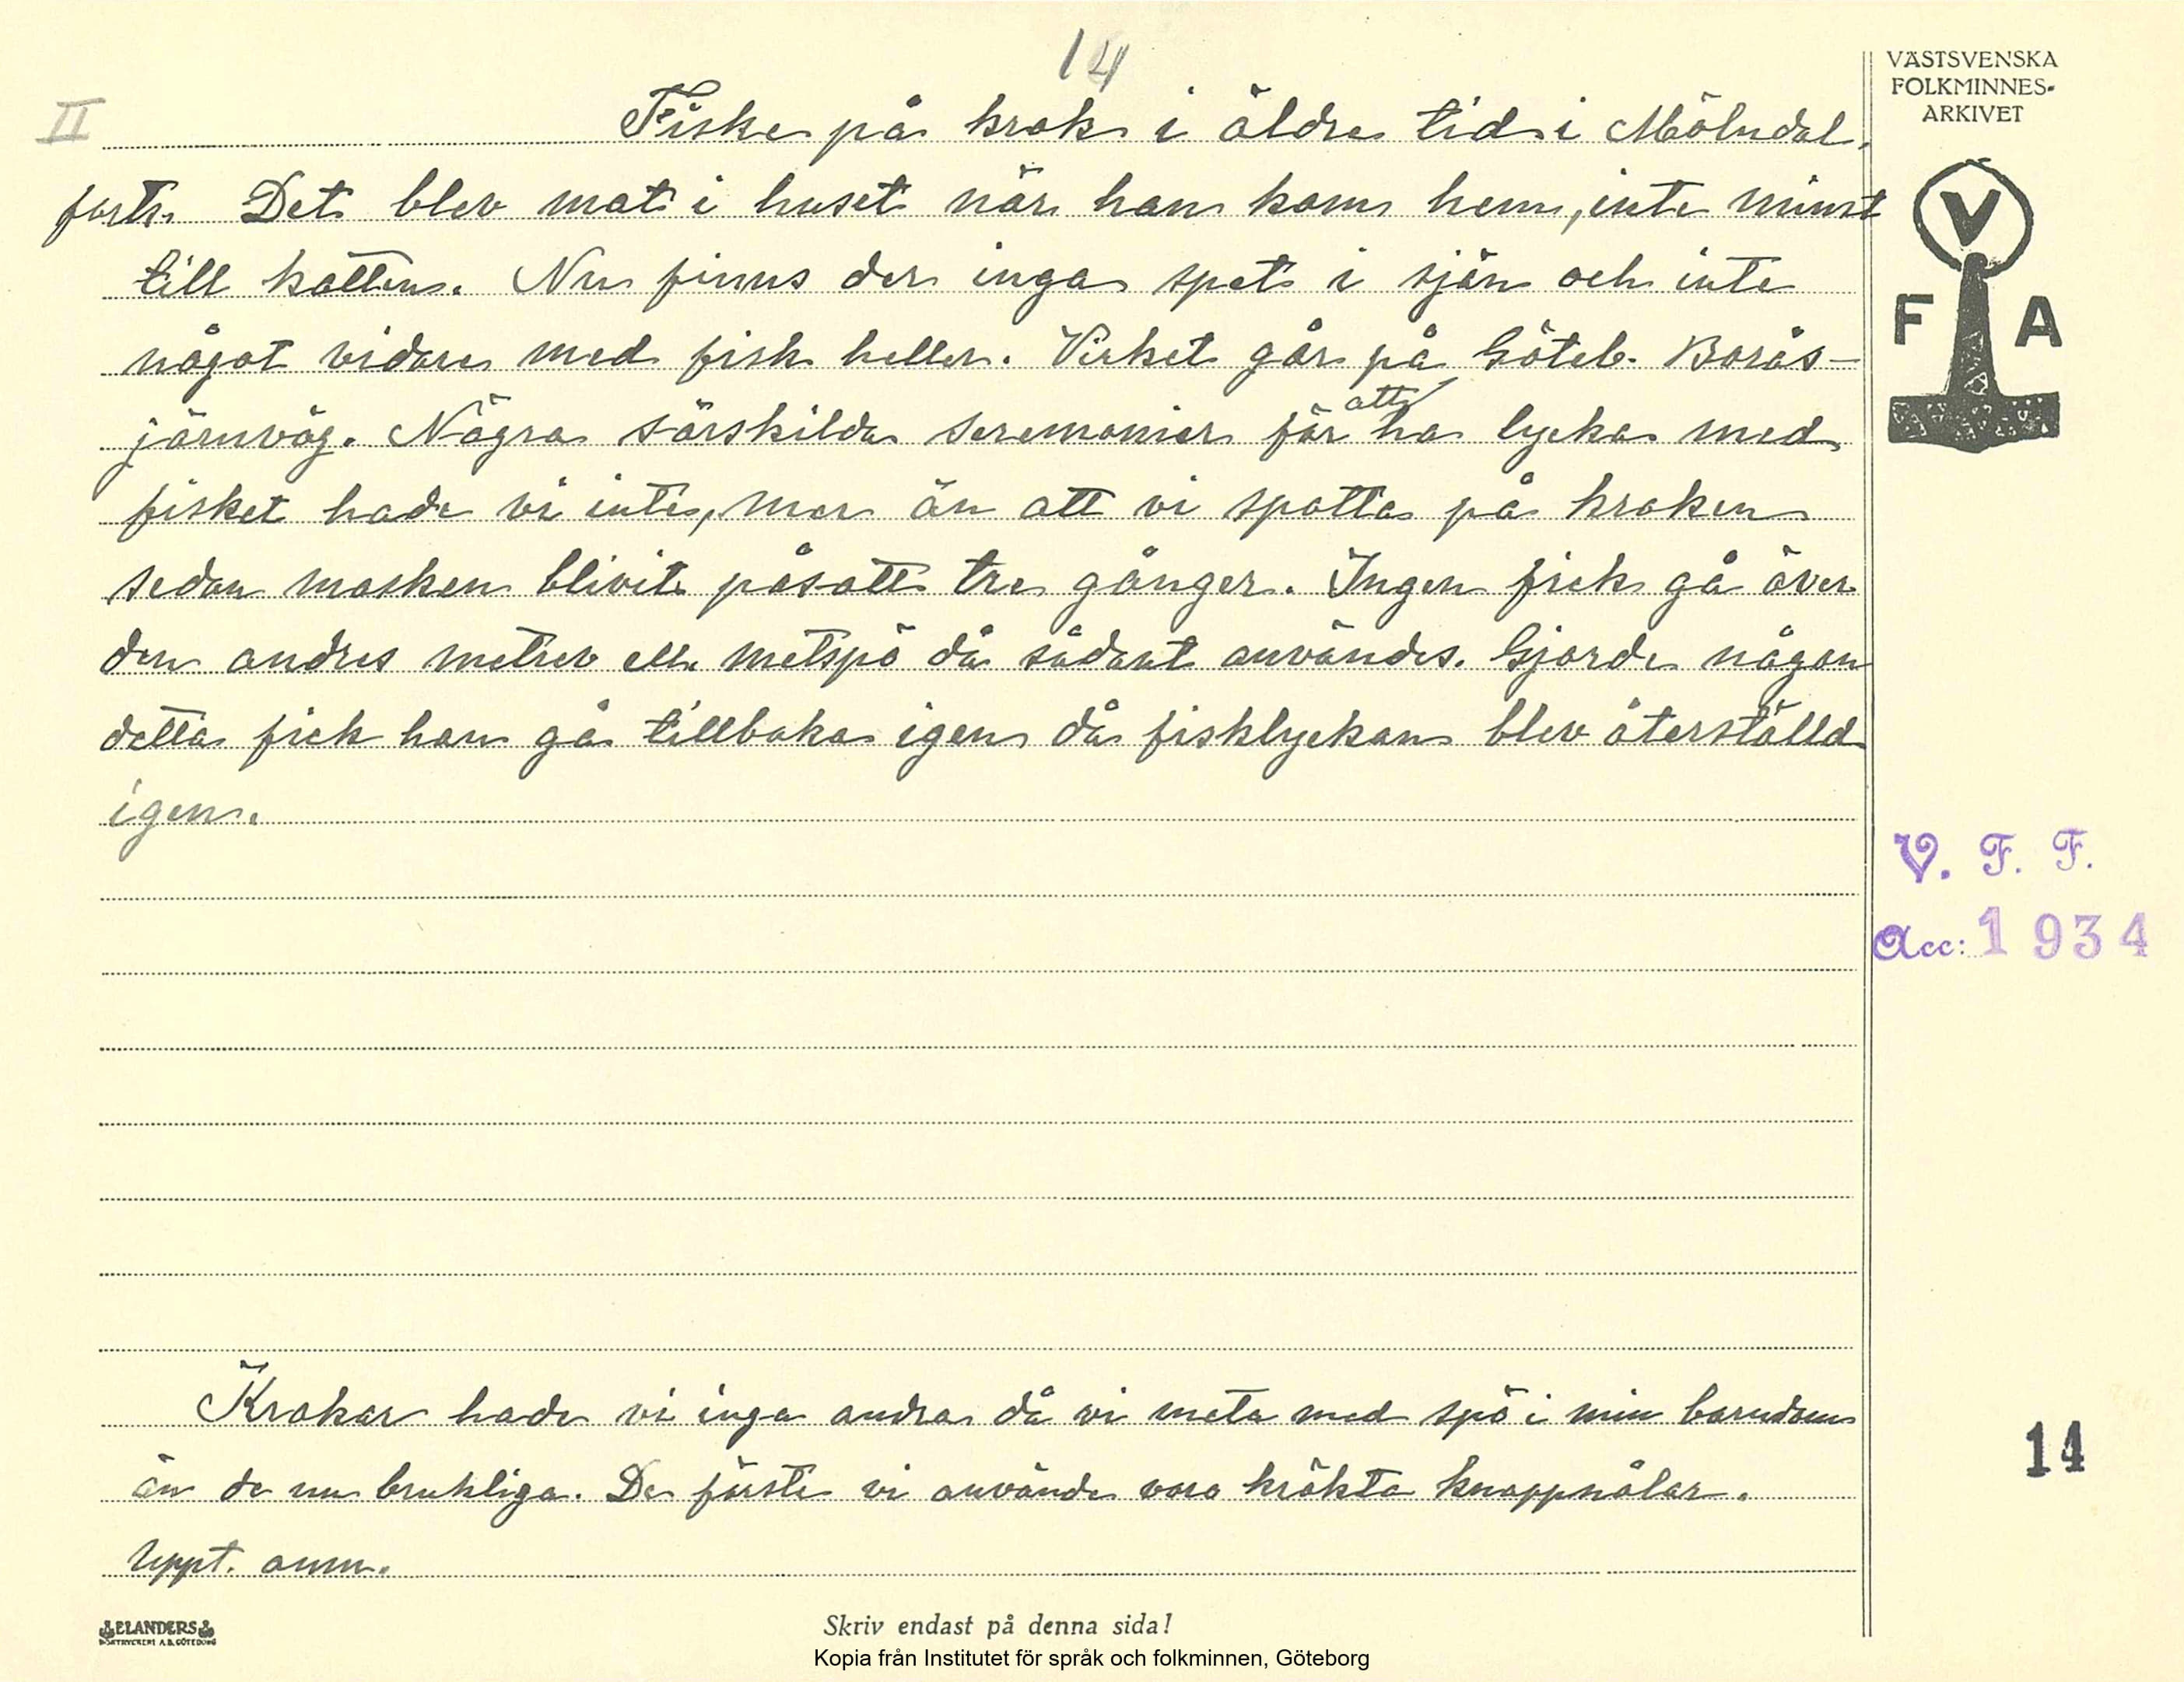 14
VÄSTSVENSKA
FOLKMINNES-
ARKIVET
II
Fiske på krok i äldre tid i Mölndal.
forts. Det blev mat i huset när han kom hem, inte minst
till katten. Nu finns der inga spet i sjön och inte
något vidare med fisk heller. Virket går på Göteb. Borås-
järnväg. Några särskilda seremonier för att ha lycka med
fisket hade vi inte, mer än att vi spotta på kroken
sedan masken blivit påsatt tre gånger. Ingen fick gå över
den andres metrev ell. metspö då sådant användes. Gjorde någon
detta fick han gå tillbaka igen då fisklyckan blev återställd
igen.
V
F A
V. F. F.
Acc: 1934
Krokar hade vi inga andra då vi meta med spö i min barndom
än de nu brukliga. De första vi använde voro krökta knappnålar.
Uppt. anm.
14
ELANDERS
BOKTRYCKERI A.B. GÖTEBORG
Skriv endast på denna sida!
Kopia från Institutet för språk och folkminnen, Göteborg